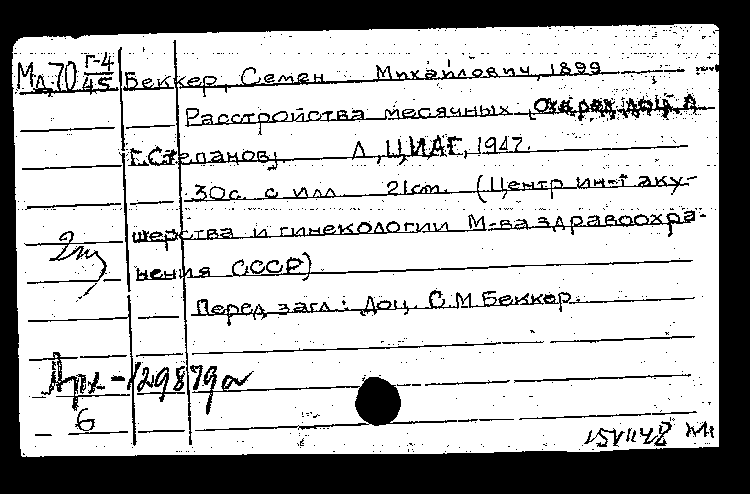 Мд 70 Г-4/45 Беккер, Семен Михайлович, 1899
Расстройства месячных,
Г. Степанов;. Л, ЦИАГ, 1947.
30с. с илл 21cm. (Центр ин-т аку-
шерства и гинекологии М-ва здравоохра-
нения СССР)
Перед загл.: Доц. С.М Беккер.
2тз
Арх - 129879а
6
15VII48